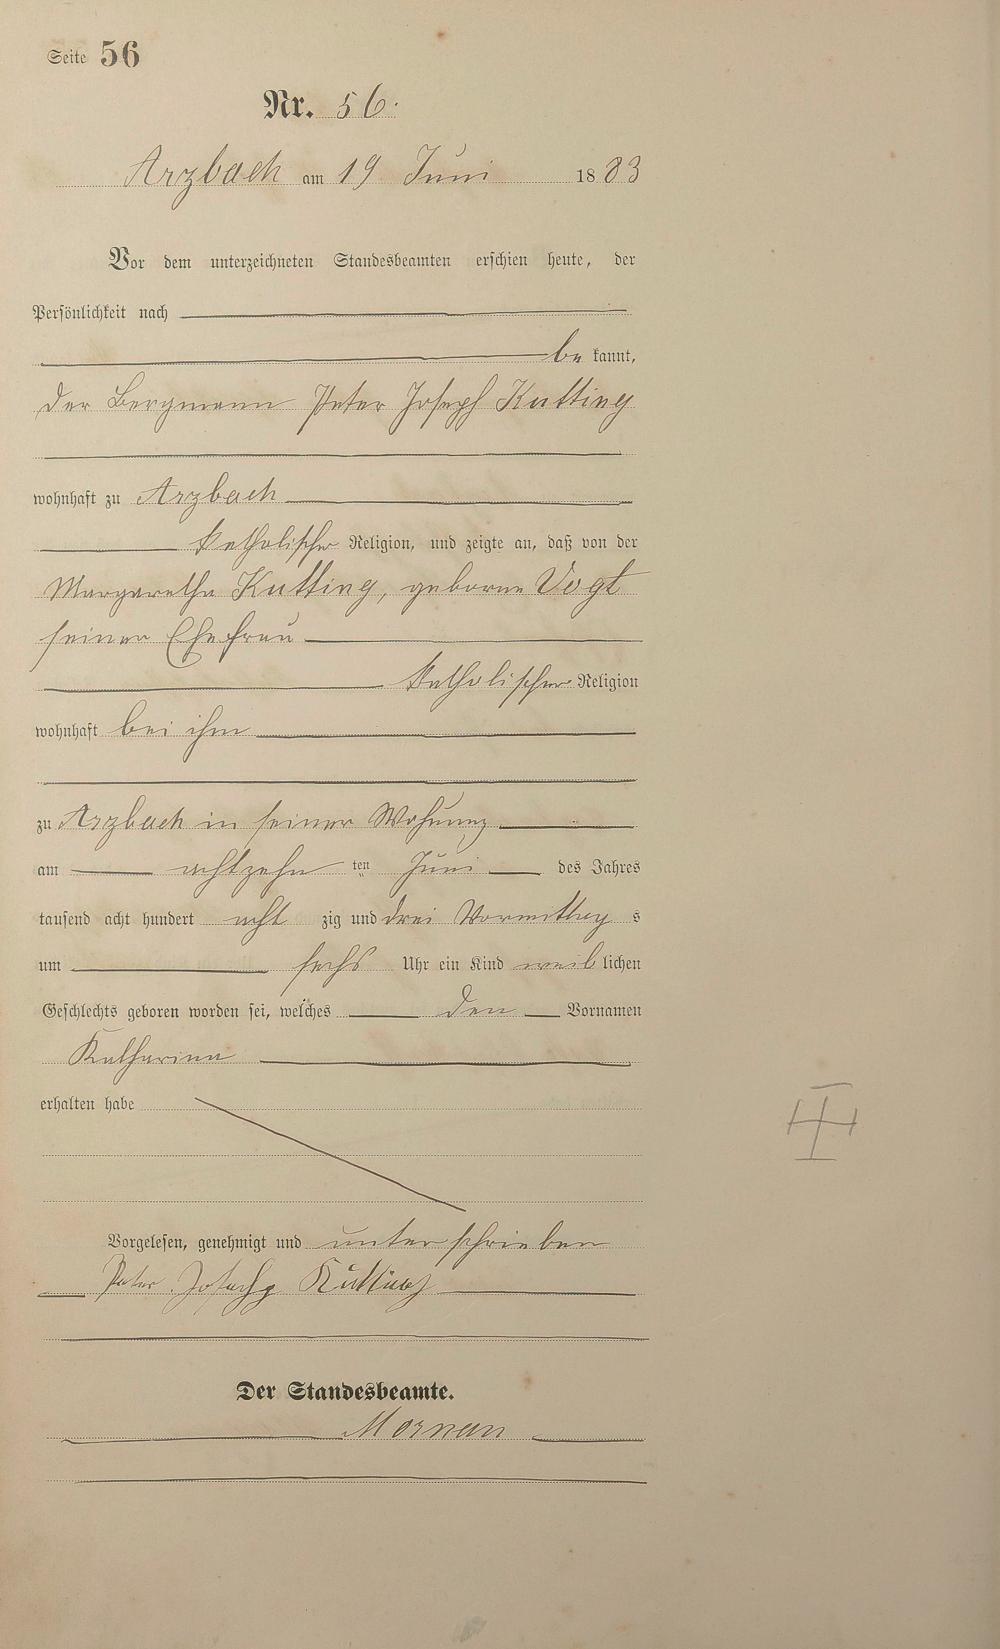 Seite 56
Nr. 56.
Arzbach am 19 Juni 1883
Vor dem unterzeichneten Standesbeamten erschien heute, der
Persönlichkeit nach
be kannt,
der Bergmann Peter Joseph Kutting
wohnhaft zu Arzbach
katholischer Religion, und zeigte an, daß von der
Margaretha Kutting, geborne Vogt
seiner Ehefrau
katholischer Religion
wohnhaft bei ihm
zu Arzbach in seiner Wohnung
am achtzehn ten Juni des Jahres
tausend acht hundert acht zig und drei Vormittag s
um sechs Uhr ein Kind weib lichen
Geschlechts geboren worden sei, welches den Vornamen
Katharina
erhalten habe
Vorgelesen, genehmigt und unterschrieben
Peter Kutting
Der Standesbeamte.